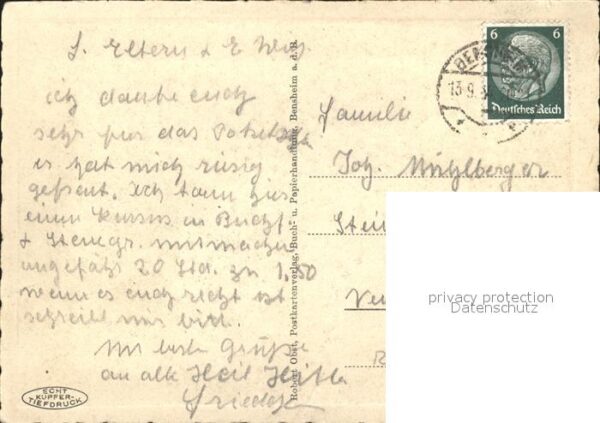 L. Eltern & E
ich danke euch
sehr für das
es hat mich riesig
gefreut. Ich kann hier
einen Kursus in Buchf
& Stenogr. mitmachen
ungefähr 20 Std. zu 1.50
wenn es euch recht ist
schreibt mir bitte.
Mit besten Grüße
an alle Heil Hitler
ECHT
KUPFER-
TIEFDRUCK
Robert Obst, Postkartenverlag, Buch- u. Papierhandlung, Bensheim a. d. B.
6 6
Deutsches Reich
BENSHEIM
13.9.3
Familie
Joh. Mühlberger
privacy protection
Datenschutz